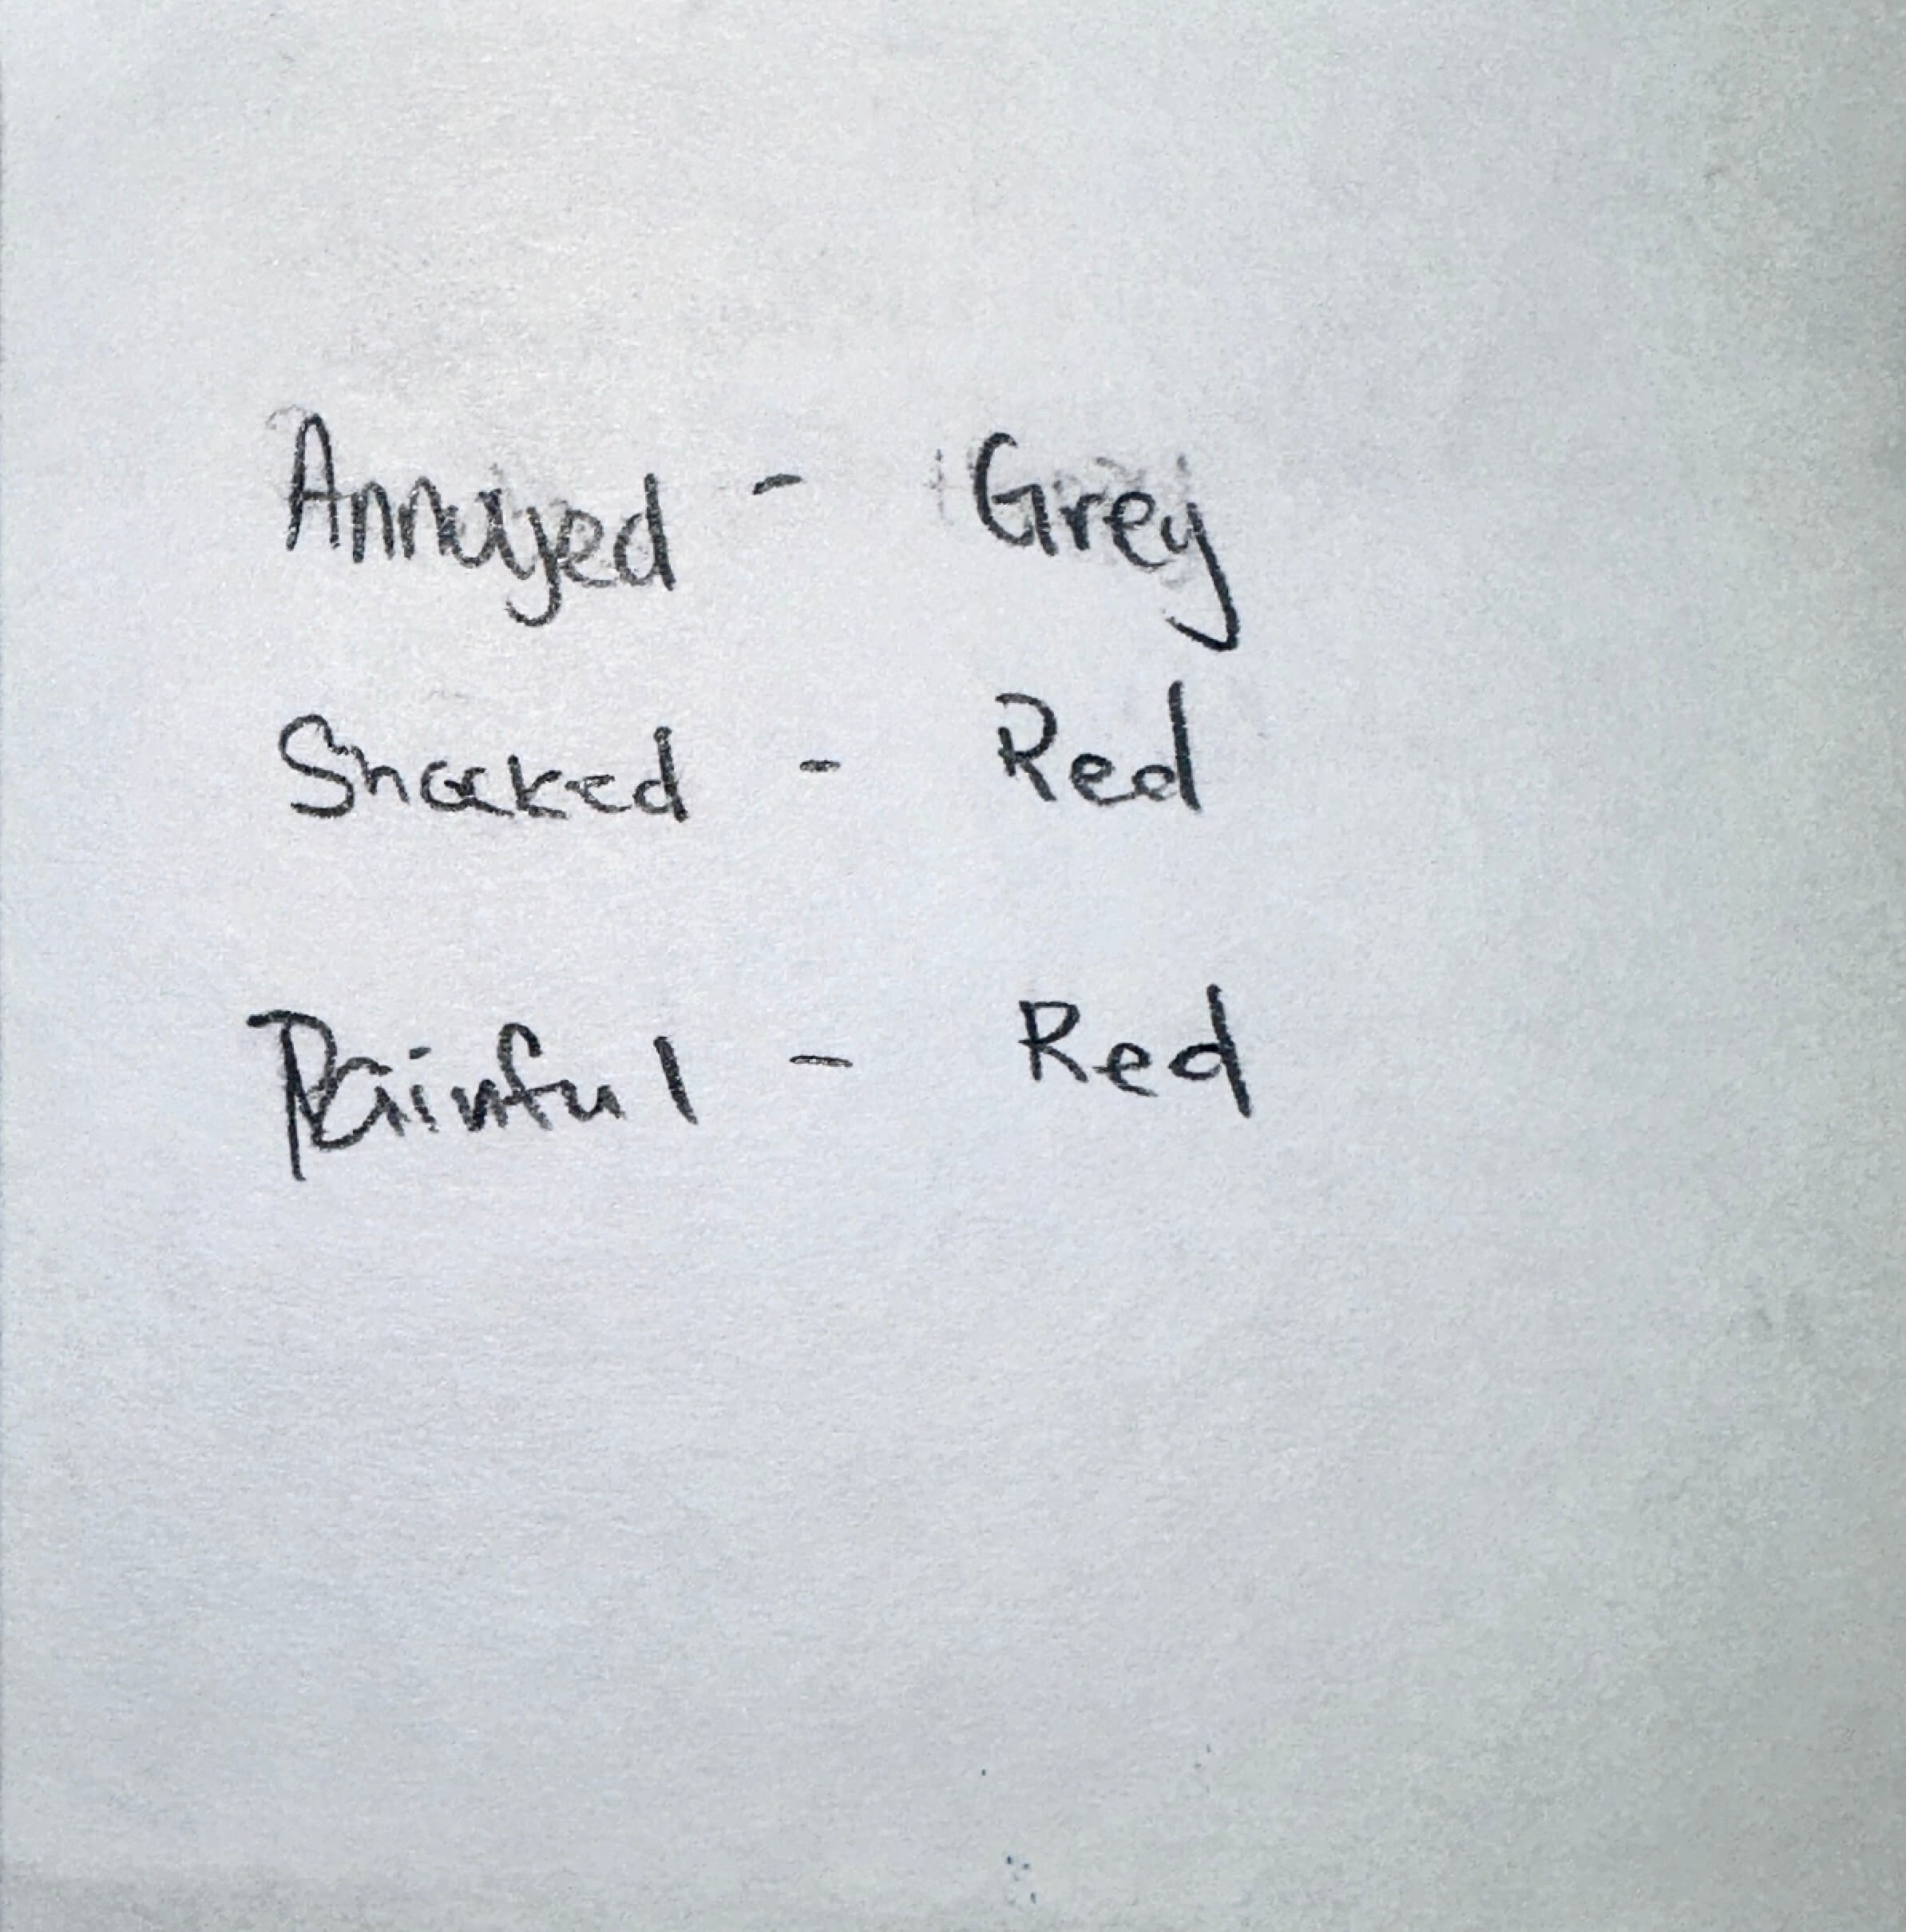 Annoyed - Grey
Shocked - Red
Painful - Red